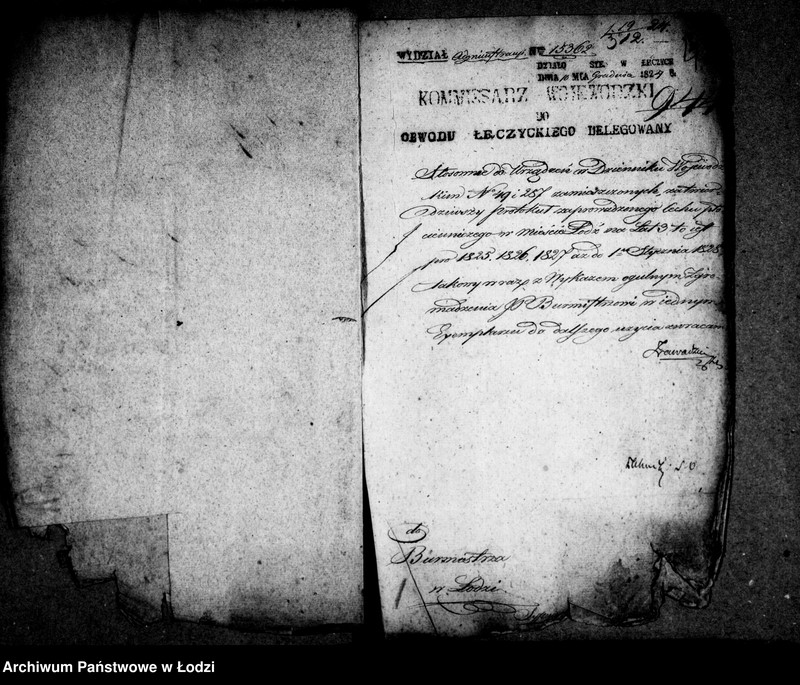 19 24
3 12.
WYDZIAŁ Administracyi No 15362
DZIAŁO SIĘ W ŁĘCZYCY
DNIA MCA Grudnia 1824 R.
KOMMISSARZ WOJEWÓDZKI
DO
OBWODU ŁĘCZYCKIEGO DELEGOWANY
Stosownie do Urządzeń w Dzienniku Wojewódz
kim No 49 i 257 zamieszczonych,
protokuł zaprowadzonego Cechu
w mieście Łodź na Lat 3 to jest
pro 1825, 1826, 1827 aż do 1o Stycznia 1828,
takowy wraz z Wykazem ogulnym Zgro
madzenia JP Burmistrzowi w jednym
Exemplarzu do dalszego użycia zwracam
do
Burmistrza
w Łodzi
Archiwum Państwowe w Łodzi